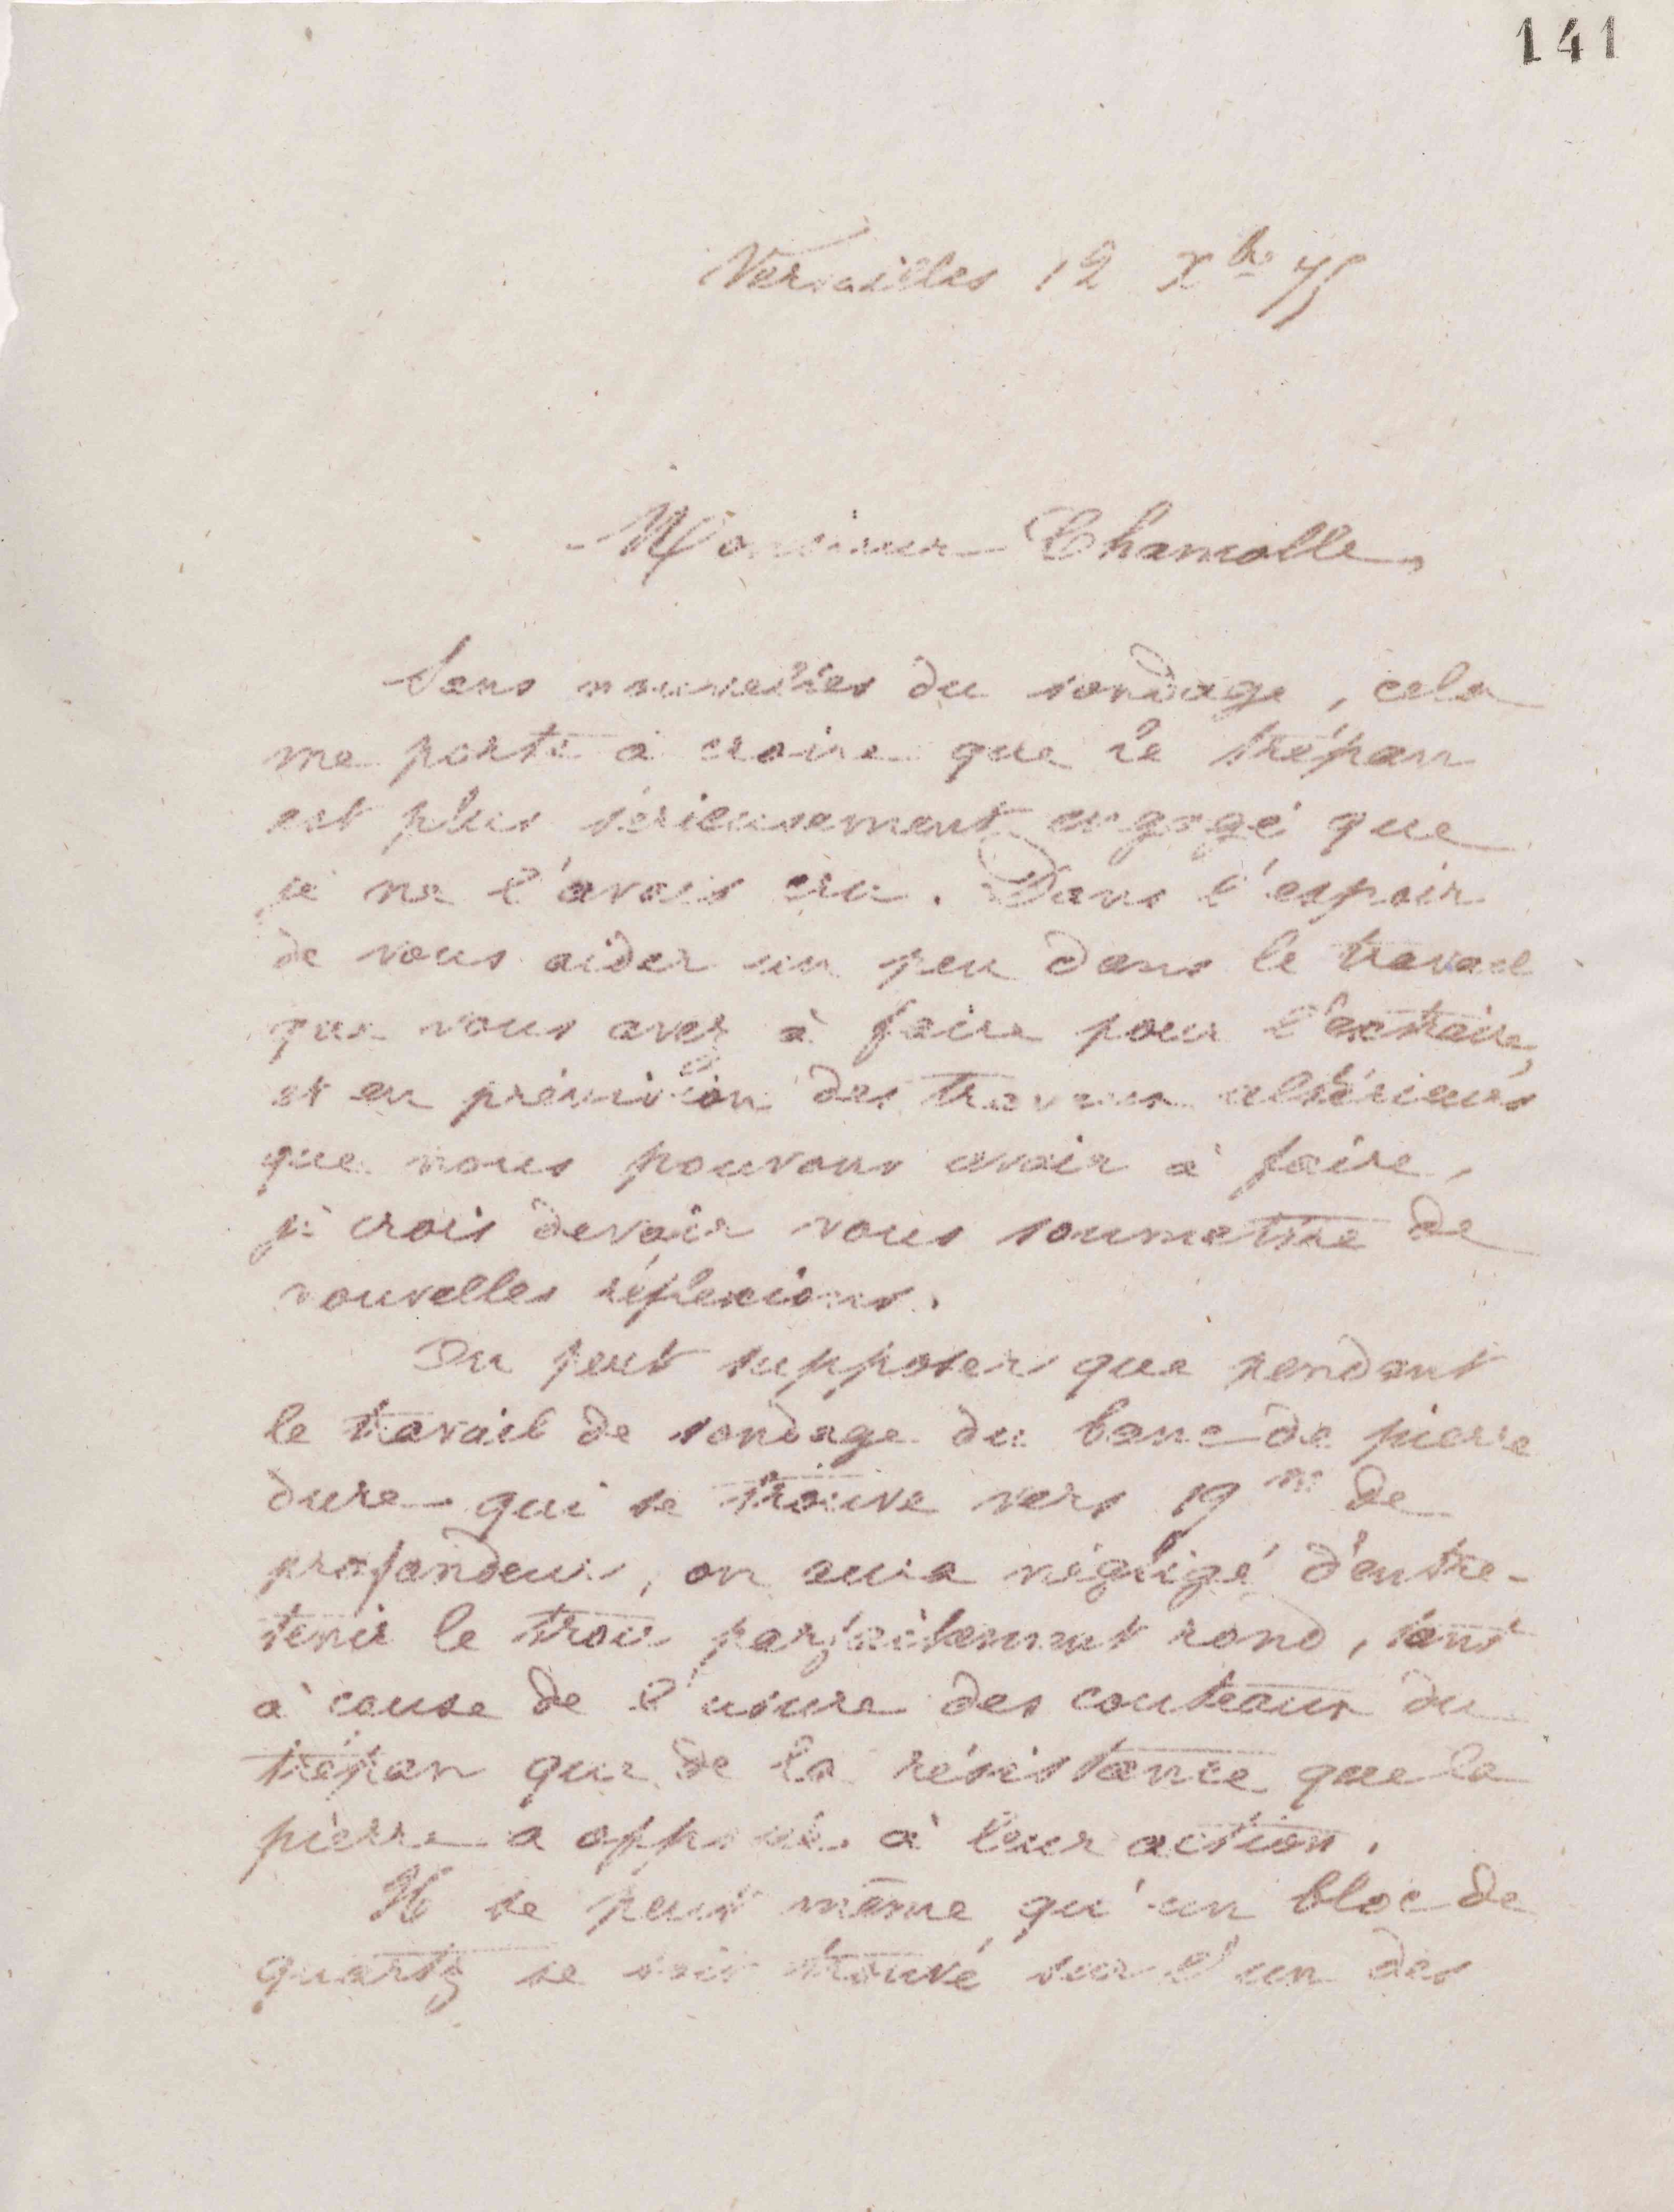 141
Versailles 12 Xbre 75
Monsieur Chamolle,
Sans nouvelles du sondage, cela
me porte à croire que le trépan
est plus sérieusement engagé que
je ne l'avais cru. Dans l'espoir
de vous aider un peu dans le travail
que vous avez à faire pour l'extraire,
et en prévision des travaux ultérieurs
que nous pouvons avoir à faire,
je crois devoir vous soumettre de
nouvelles réflexions.
On peut supposer que pendant
le travail de sondage du banc de pierre
dure qui se trouve vers 19 m de
profondeur, on aura négligé d'entre-
tenir le trou parfaitement rond, tant
à cause de l'usure des couteaux du
trépan que de la résistance que la
pierre a opposée à leur action.
Il se peut même qu'un bloc de
quartz se soit trouvé sur l'un des